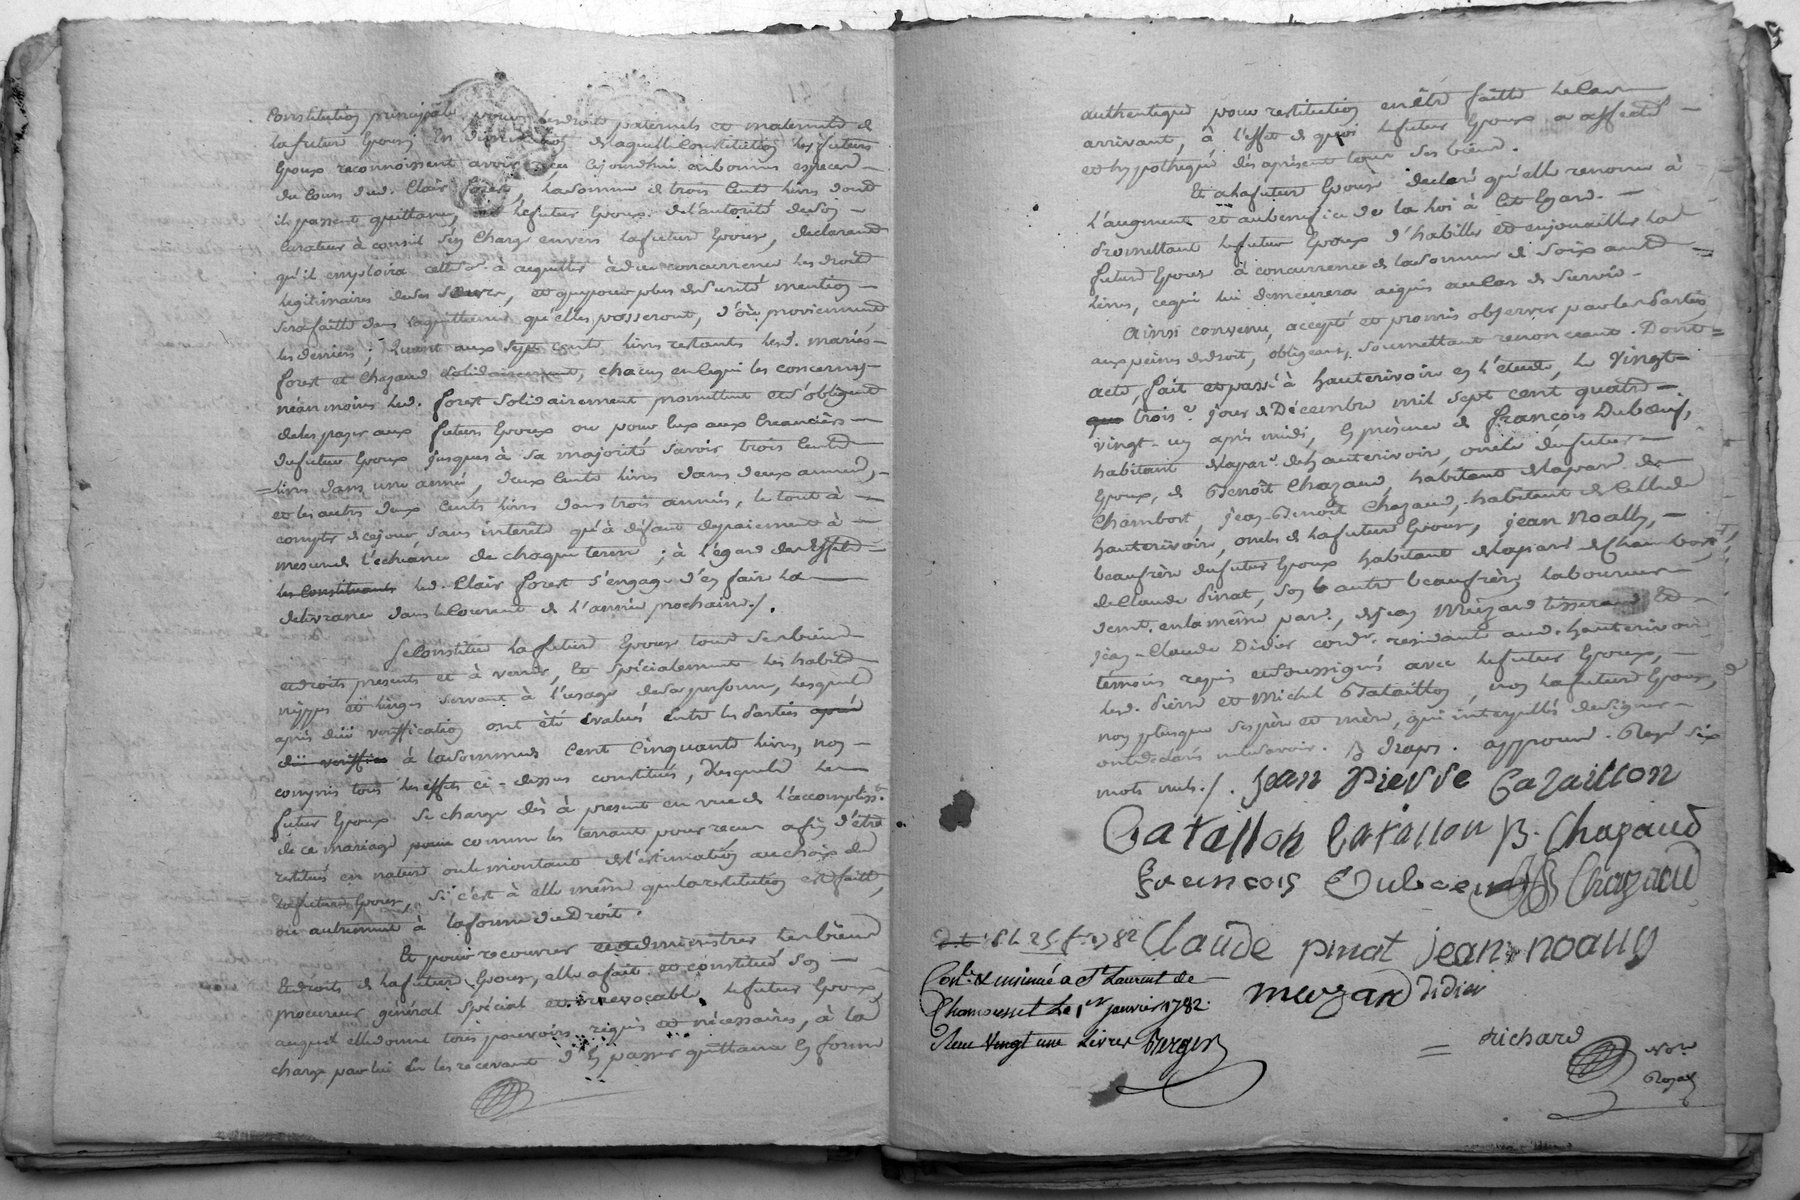 Constitution principale pour ses droits paternels et maternels de
la future Epouse En diminution de laquelle Constitution les futurs
Epoux reconnoissent avoir reçu cejourdhui en bonnes especes
du Cours dud. Clair forest, la somme de trois cents livres dont
ils passent quittance, et le futur Epoux de l'autorité de son
Curateur à conseil s'en charge envers la future Epouse, declarant
qu'il emploira cette so. à acquitter à due concurrence les droits
legitimaires de ses soeurs, et que pour plus de sureté mention
sera faitte dans la quittance qu'elles passeront, d'où proviennent
les deniers ; Quant aux sept cents livres restants lesd. mariés
forest et Chazaud solidairement, chacun en ce qui les concerne,
néanmoins led. forest solidairement promettent et s'obligent
de les payer aux futurs Epoux ou pour Eux aux Creanciers
du futur Epoux jusques à sa majorité savoir trois Cents
livres dans une année, deux Cents livres dans deux années,
et les autres deux Cents livres dans trois années, le tout à
compter de ce jour, sans interets qu'à défaut de paiement à
mesure de l'échéance de chaque terme ; à l'égard des Effets
les Constituants led. Clair forest s'engage d'en faire la
delivrance dans le Courant de l'année prochaine./.
Se Constitue la future Epouse tous ses biens
et droits presents et à venir, Et spécialement les habits
nippes et linges servant à l'usage de sa personne, lesquels
après düe veriffication ont été Evalués Entre les Parties après
düe veriffica à la somme de Cent Cinquante livres, non
compris tous les effets ci-dessus constitués, desquels le
futur Epoux se charge dès à present en vue de l'accompliss.t
de ce mariage pour comme les tenants pour reçus afin d'être
restitués en nature ou le montant de l'estimation au choix de
la future Epouse, si c'est à elle même que la restitution est faitte,
ou autrement à la forme du Droit.
Et pour recouvrer et administrer les biens
et droits de la future Epouse, elle a fait et constitué son
procureur général spécial et irrevocable le futur Epoux
auquel elle donne tous pouvoirs requis et nécessaires, à la
charge par lui En les recevant d'en passer quittance En forme
authentique pour restitution en être faitte le Cas
arrivant, à l'effet de quoi le futur Epoux a affecté
et hypothequé dès apresent tous ses biens.
Et a la future Epouse declaré qu'elle renonce à
l'augment et au benefice de la Loi à Cet Egard.
Promettant le futur Epoux d'habiller et enjouailler la d.
future Epouse à concurrence de la somme de soixante
livres, ce qui lui demeurera acquis au Cas de survie.
Ainsi convenu, accepté et promis observer par les Parties
aux peines de droit, obligeant, soumettant renonceant. Dont
acte, fait et passé à hauterivoire en l'étude, le vingt
que trois e. jour de Décembre mil sept cent quatre
vingt-un après midi, En présence de françois Duboeuf,
habitant de la par.e de hauterivoire, oncle du futur
Epoux, de Benoît Chazaud, habitant de la par.e de
Chambost, jean-Benoît Chazaud, habitant de Celle de
hauterivoire, oncles de la future Epouse, jean Noally,
beaufrère du futur Epoux habitant de la par.e de Chambost,
de Claude Pinat, son autre beaufrère laboureur
dem.t en la même par.e, de jean Meyzard tisserand Et
jean-Claude Didier cord.r residants aud. hauterivoire
temoins requis et soussignés avec le futur Epoux,
lesd. Pierre et Michel Bataillon, non la future Epouse,
non plus que ses père et mère, qui interpellés de signer
ont déclaré ne le savoir. approuv. Rayé six
mots nuls./. Jean Pierre Bataillon
Bataillon bataillon B. Chazaud
François Duboeuf JB Chazaud
Claude pinat jean noally
meyzard Didier
Richard
No.re
Royal
Cont.lé & insinué a St Laurent de
Chamousset Le 1er janvier 1782.
Reçu Vingt une Livres Berger